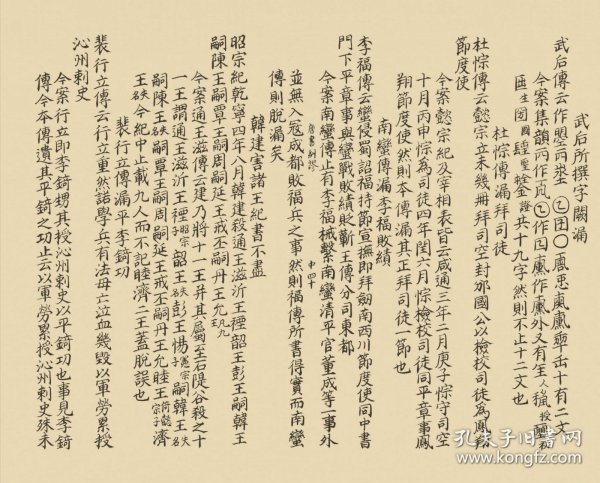 武后所撰字闕漏
武后傳云作曌𠀑埊𡆠囝〇 十有二文
今案集韻 作 外又有 人 授
共十九字然則不止十二文也
杜悰傳漏拜司徒
杜悰傳云懿宗立未幾冊拜司空封邠國公以檢校司徒為鳳翔
節度使
今案懿宗紀及宰相表皆云咸通三年二月庚子悰守司空
十月丙申悰為司徒四年閏六月悰檢校司徒同平章事鳳
翔節度使然則本傳漏其正拜司徒一節也
南蠻傳漏李福敗績
李福傳云蠻侵蜀詔福持節宣撫即拜劒南西川節度使同中書
門下平章事與蠻戰敗績貶蘄王傅分司東都
今案南蠻傳止有李福械繫南蠻清平官董成等一事外
唐書糾謬 中四十
並無入寇成都敗福兵之事然則福傳所書得實而南蠻
傳則脫漏矣
韓建害諸王紀書不盡
昭宗紀乾寧四年八月韓建殺通王滋沂王禋韶王彭王嗣韓王
嗣陳王嗣覃王嗣周嗣延王戒丕嗣丹王允凡九
今案通王滋傳云建乃將十一王并其屬至石隄谷殺之十
一王謂通王滋沂王禋昭宗子韶王失名彭王惕憲宗子嗣韓王失名
嗣陳王失名嗣覃王嗣周嗣延王戒丕嗣丹王允睦王 濟
王失名今紀中止載九人而不記睦濟二王蓋脫誤也
裴行立傳漏平李錡功
裴行立傳云行立重然諾學兵有法母亡泣血幾毀以軍勞累授
沁州刺史
今案行立即李錡甥其授沁州刺史以平錡功也事見李錡
傳今本傳遺其平錡之功止云以軍勞累授沁州刺史殊未
孔夫子旧书网
www.kongfz.com